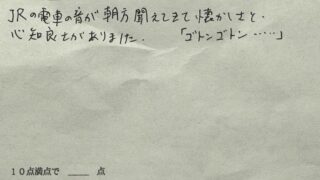 JRの電車の音が朝方聞えてきて懐かしさと、
心知良さがありました。　「ゴトンゴトン……」
10点満点で ＿＿ 点